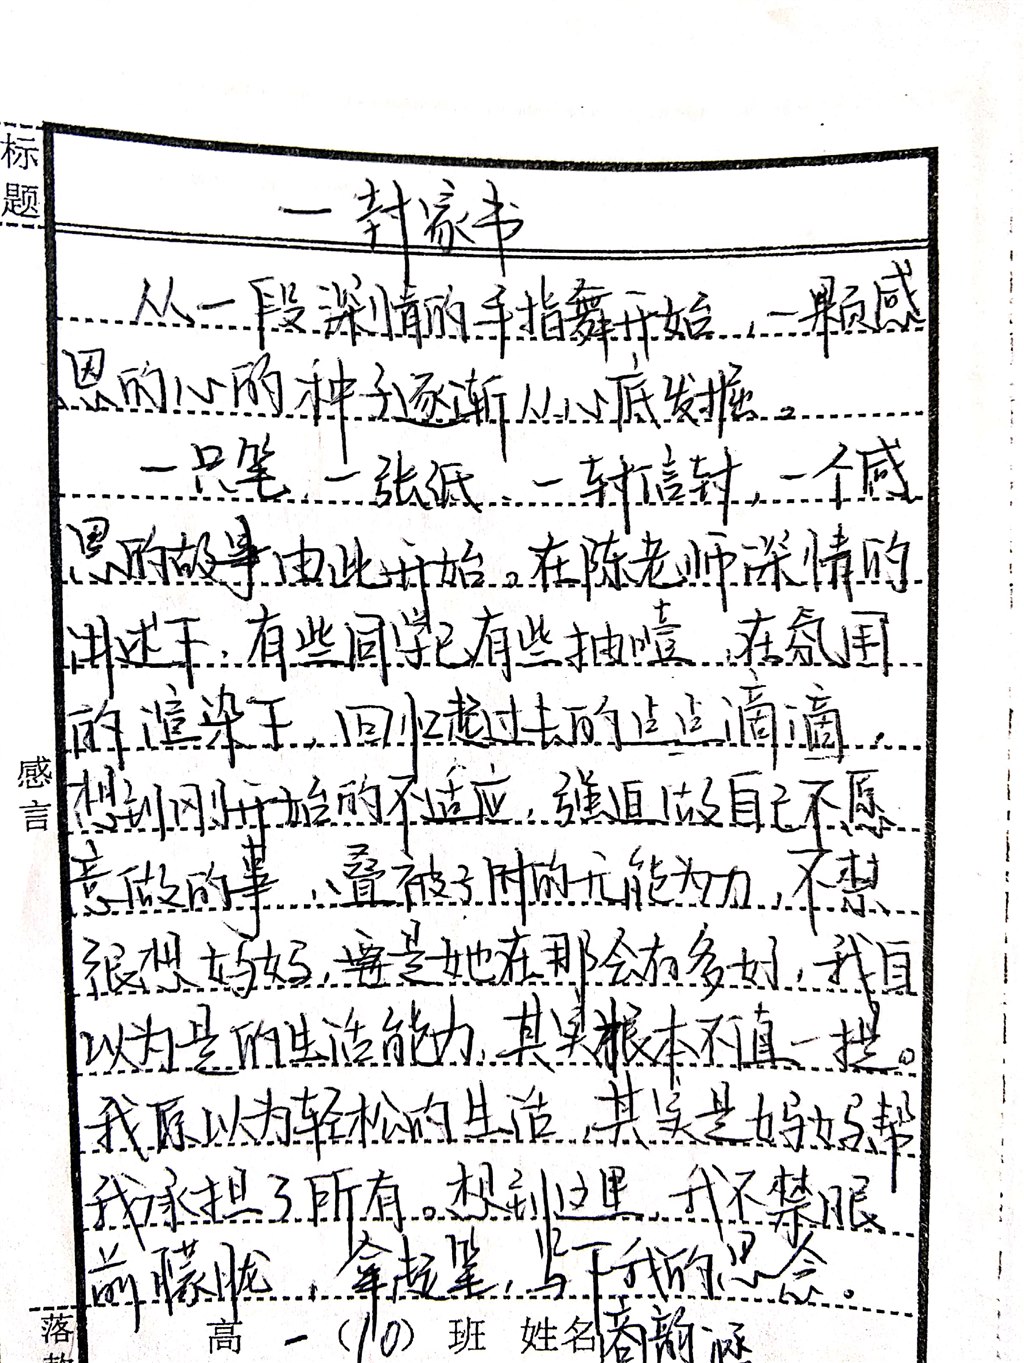 标题
一封家书
从一段深情的手指舞开始，一颗感
恩的心的种子逐渐从心底发掘。
一只笔，一张纸，一封信封，一个感
恩的故事由此开始。在陈老师深情的
讲述下，有些同学已有些抽噎，在氛围
的渲染下，回忆起过去的点点滴滴，
想到刚开始的不适应，强迫做自己不愿
意做的事，叠被子时的无能为力，不禁
很想妈妈，要是她在那会有多好，我自
以为是的生活能力，其实根本不值一提。
我原以为轻松的生活，其实是妈妈帮
我承担了所有。想到这里，我不禁眼
前朦胧，拿起笔，写下我的思念。
感言
落款
高一(10)班 姓名商韵涵